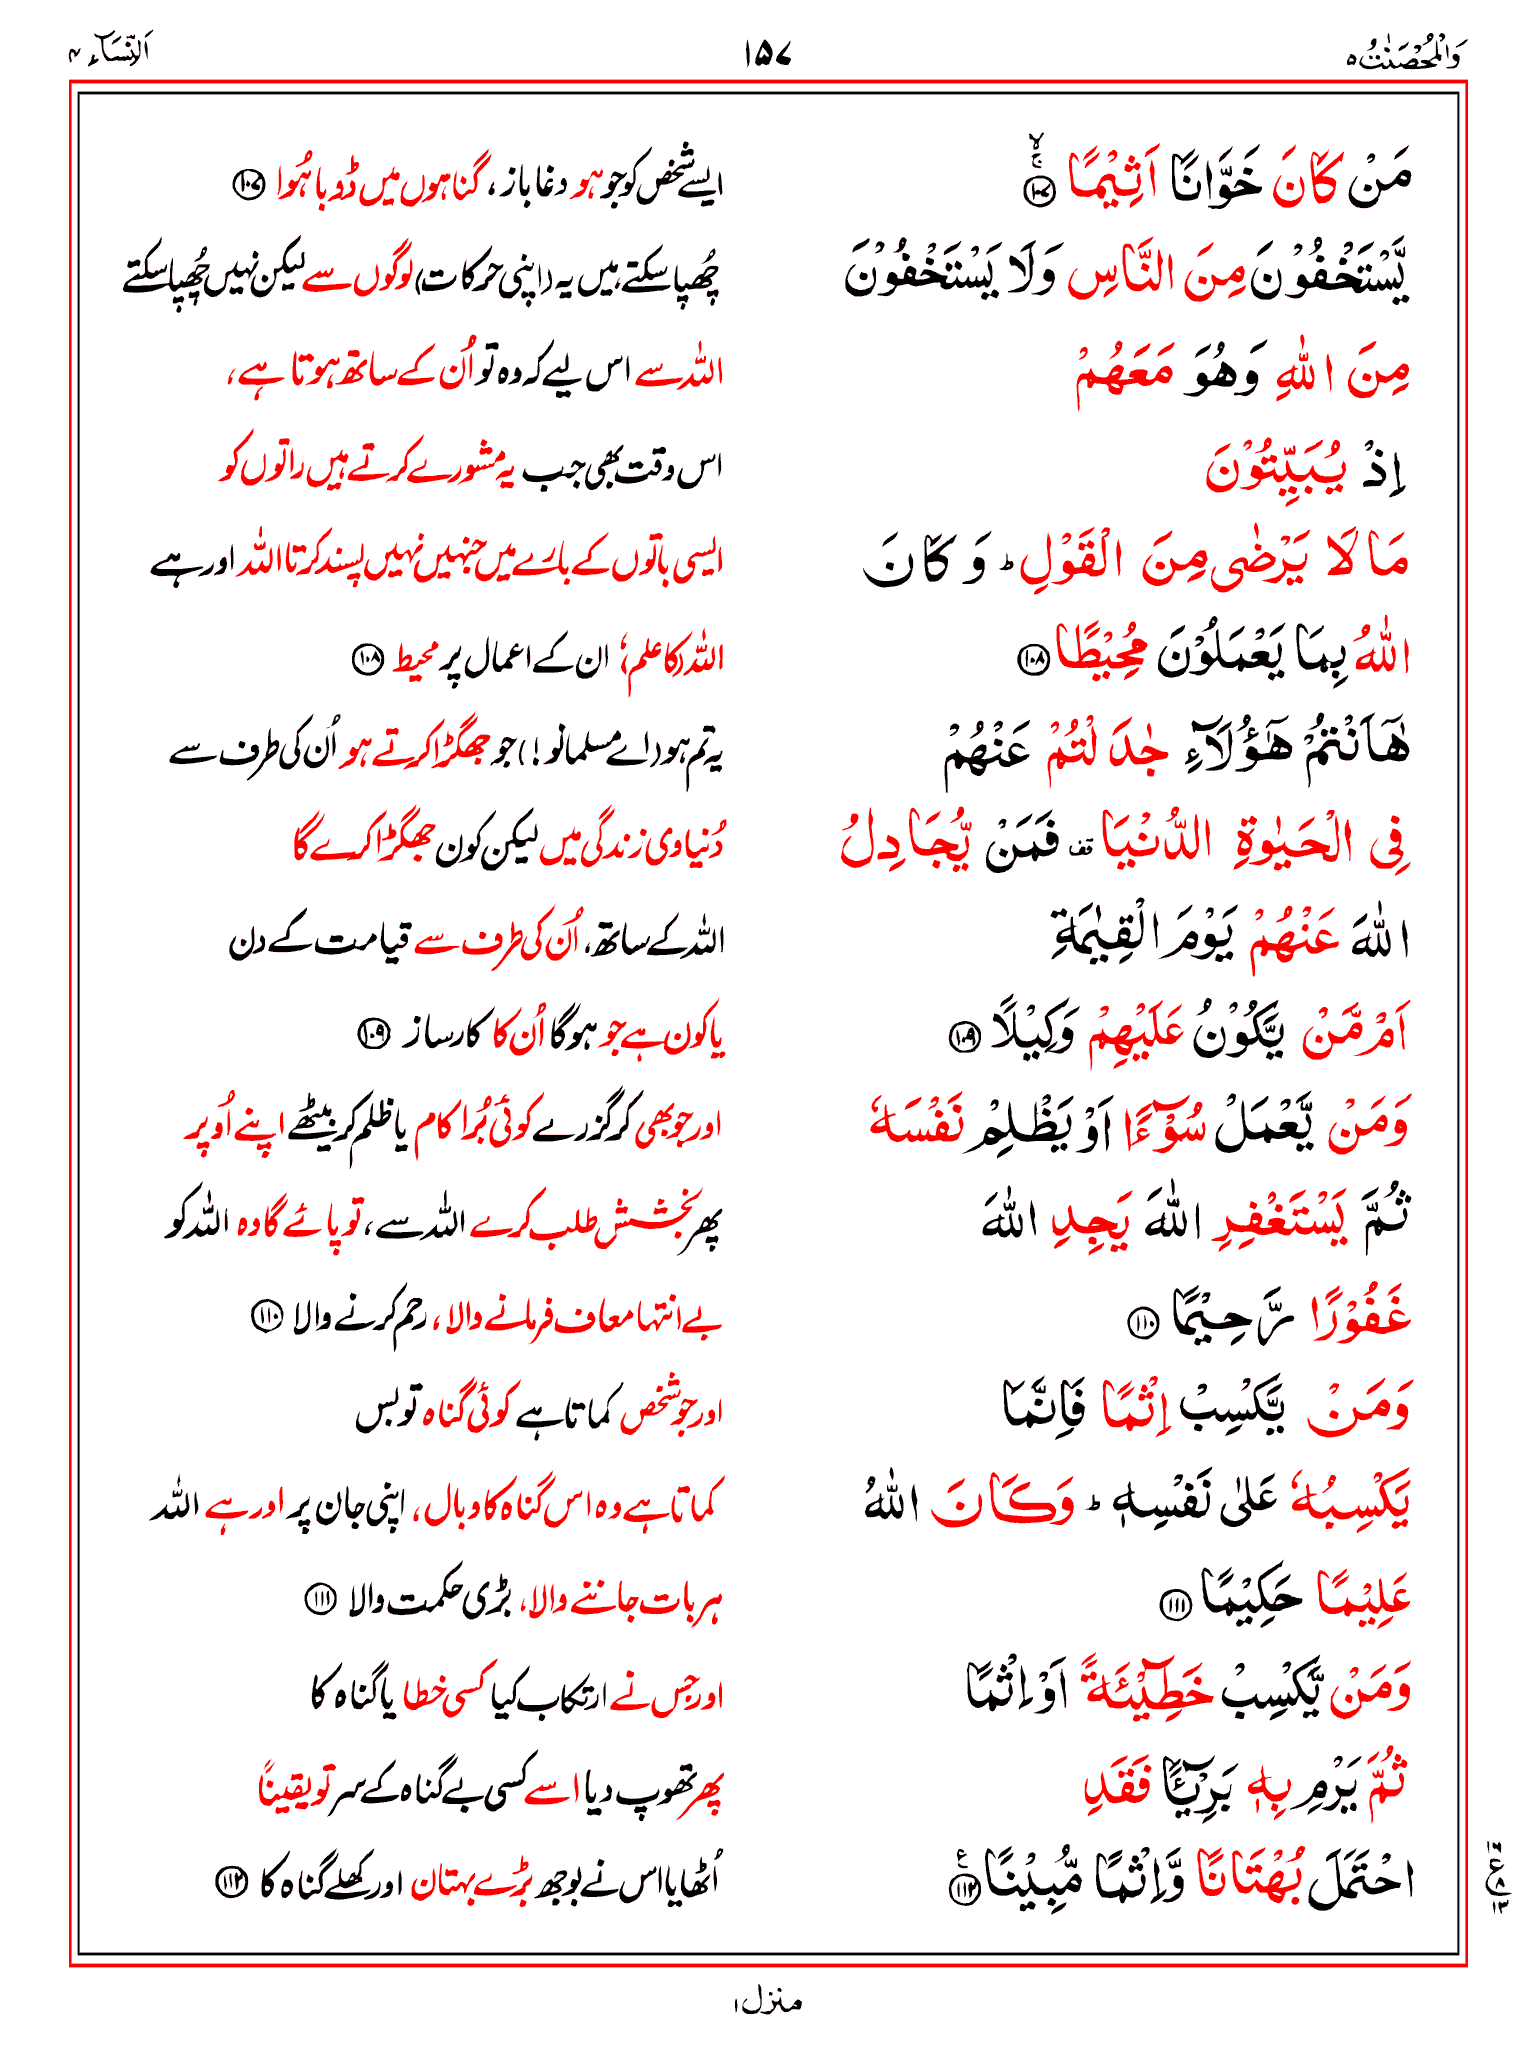 وَالْمُحْصَنٰتُ ٥
١٥٧
اَلنِّسَآء ٤
مَنْ كَانَ خَوَّانًا اَثِيْمًا ۙۚ ﴿١٠٧﴾
ایسے شخص کو جو ہو دغاباز، گناہوں میں ڈوبا ہُوا ﴿١٠٧﴾
يَّسْتَخْفُوْنَ مِنَ النَّاسِ وَلَا يَسْتَخْفُوْنَ
چُھپا سکتے ہیں یہ (اپنی حرکات) لوگوں سے لیکن نہیں چُھپا سکتے
مِنَ اللّٰهِ وَهُوَ مَعَهُمْ
اللّٰہ سے اس لیے کہ وہ تو اُن کے ساتھ ہوتا ہے،
اِذْ يُبَيِّتُوْنَ
اس وقت بھی جب یہ مشورے کرتے ہیں راتوں کو
مَا لَا يَرْضٰى مِنَ الْقَوْلِ ؕ وَ كَانَ
ایسی باتوں کے بارے میں جنہیں نہیں پسند کرتا اللّٰہ اور ہے
اللّٰهُ بِمَا يَعْمَلُوْنَ مُحِيْطًا ﴿١٠٨﴾
اللّٰہ (کا علم) ان کے اعمال پر محیط ﴿١٠٨﴾
هٰٓاَنْتُمْ هٰٓؤُلَآءِ جٰدَلْتُمْ عَنْهُمْ
یہ تم ہو (اے مسلمانو!) جو جھگڑا کرتے ہو اُن کی طرف سے
فِى الْحَيٰوةِ الدُّنْيَا قف فَمَنْ يُّجَادِلُ
دُنیاوی زندگی میں لیکن کون جھگڑا کرے گا
اللّٰهَ عَنْهُمْ يَوْمَ الْقِيٰمَةِ
اللّٰہ کے ساتھ، اُن کی طرف سے قیامت کے دن
اَمْ مَّنْ يَّكُوْنُ عَلَيْهِمْ وَكِيْلًا ﴿١٠٩﴾
یا کون ہے جو ہوگا اُن کا کارساز ﴿١٠٩﴾
وَمَنْ يَّعْمَلْ سُوْٓءًا اَوْ يَظْلِمْ نَفْسَهٗ
اور جو بھی کر گزرے کوئی بُرا کام یا ظلم کر بیٹھے اپنے اُوپر
ثُمَّ يَسْتَغْفِرِ اللّٰهَ يَجِدِ اللّٰهَ
پھر بخشش طلب کرے اللّٰہ سے، تو پائے گا وہ اللّٰہ کو
غَفُوْرًا رَّحِيْمًا ﴿١١٠﴾
بے انتہا معاف فرمانے والا، رحم کرنے والا ﴿١١٠﴾
وَمَنْ يَّكْسِبْ اِثْمًا فَاِنَّمَا
اور جو شخص کماتا ہے کوئی گناہ تو بس
يَكْسِبُهٗ عَلٰى نَفْسِهٖ ؕ وَكَانَ اللّٰهُ
کماتا ہے وہ اس گناہ کا وبال، اپنی جان پر اور ہے اللّٰہ
عَلِيْمًا حَكِيْمًا ﴿١١١﴾
ہر بات جاننے والا، بڑی حکمت والا ﴿١١١﴾
وَمَنْ يَّكْسِبْ خَطِيْٓئَةً اَوْ اِثْمًا
اور جس نے ارتکاب کیا کسی خطا یا گناہ کا
ثُمَّ يَرْمِ بِهٖ بَرِيْٓئًا فَقَدِ
پھر تھوپ دیا اسے کسی بے گناہ کے سر تو یقیناً
احْتَمَلَ بُهْتَانًا وَّاِثْمًا مُّبِيْنًا ﴿١١٢﴾ ع
اُٹھایا اس نے بوجھ بڑے بہتان اور کھلے گناہ کا ﴿١١٢﴾
منزل ١